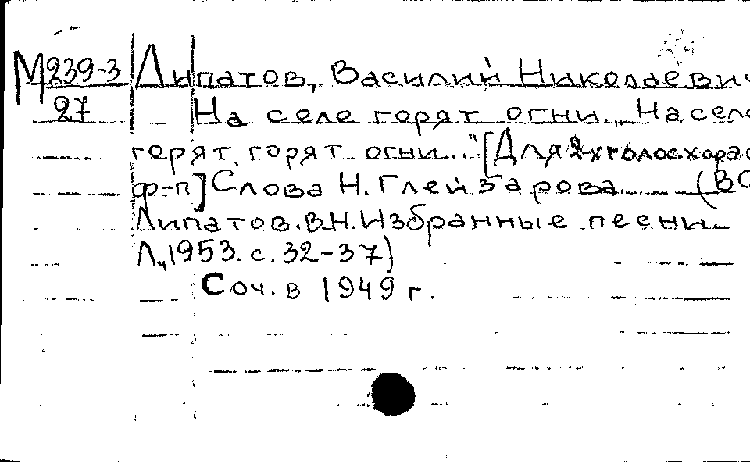 М239-3 Липатов, Василий Николаевич
27 На селе горят огни... „На селе
горят, горят огни..." [Для 2-хголосхора с
ф-п] Слова Н. Глейзарова (В С
Липатов. В.Н. Избранные песни
Л., 1953. с. 32-37)
Соч. в 1949 г.